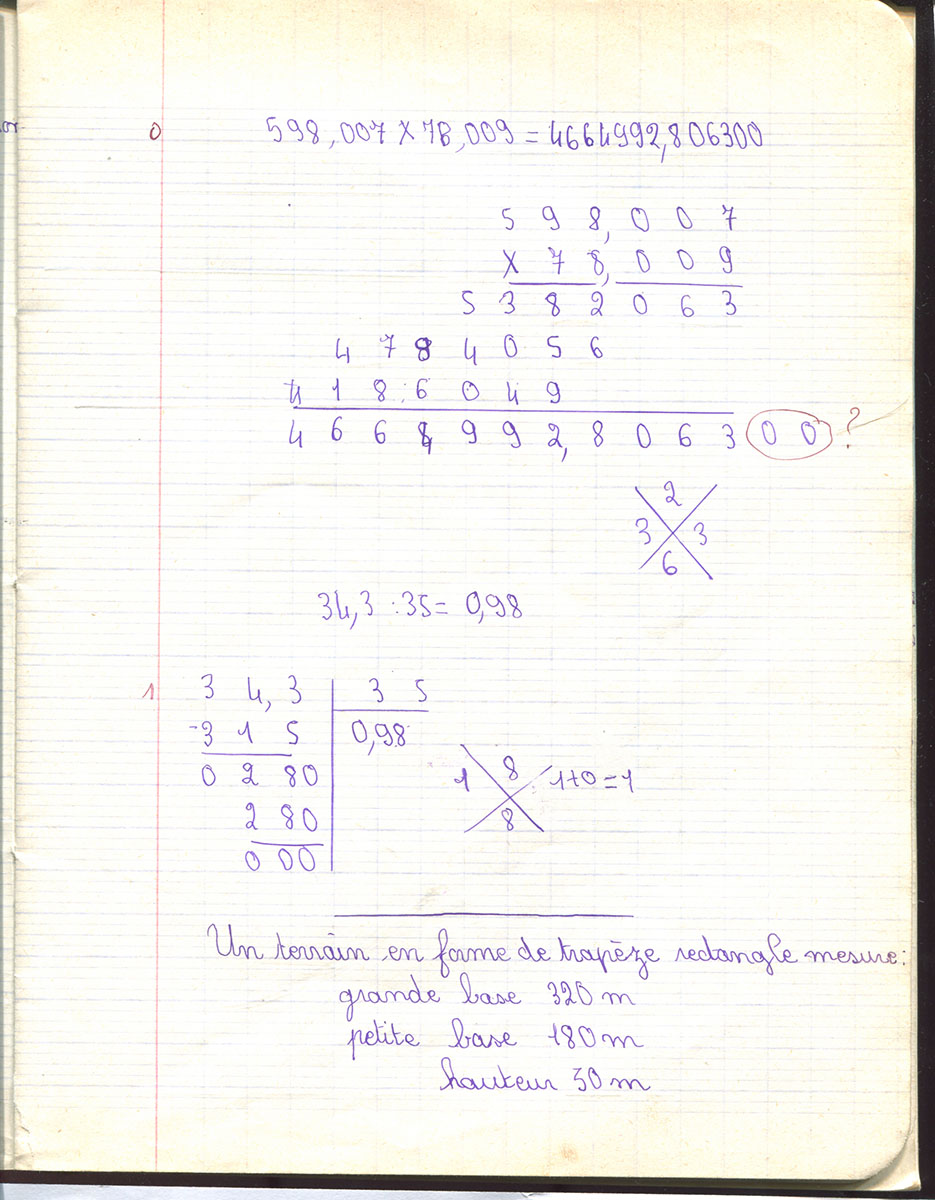 0 598,007 X 78,009 = 4664992,806300
5 9 8, 0 0 7
X 7 8, 0 0 9
5 3 8 2 0 6 3
4 7 8 4 0 5 6
4 1 8 6 0 4 9
4 6 6 4 9 9 2, 8 0 6 3 0 0 ?
2
3 3
6
34,3 : 35 = 0,98
1 3 4, 3 3 5
-3 1 5 0,98
0 2 80
1 8 1+0=1
2 80 8
0 00
Un terrain en forme de trapèze rectangle mesure :
grande base 320 m
petite base 180 m
hauteur 50 m